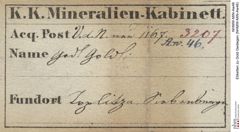 K.K. Mineralien-Kabinett.
Acq. Post V.d.N. 1167. 3207
An. 46.
Name ged. Gold.
Fundort Toplitza, Siebenbürgen